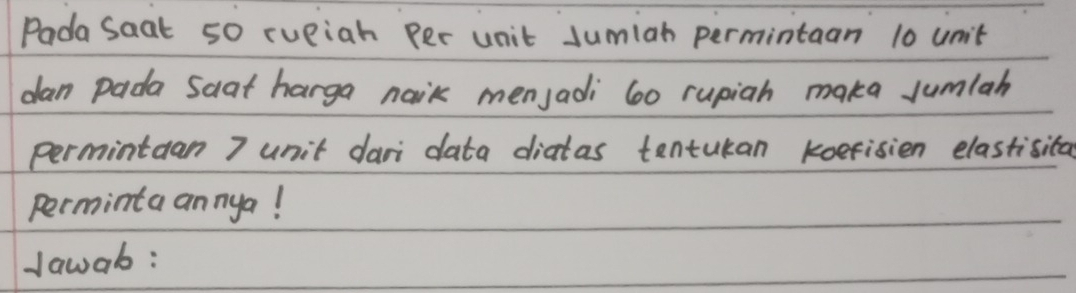 Pada Saat 50 rupiah Per unit Jumlah permintaan 10 unit
dan pada saat harga naik menjadi 60 rupiah maka Jumlah
permintaan 7 unit dari data diatas tentukan koefisien elastisitas
perminta annya!
Jawab: